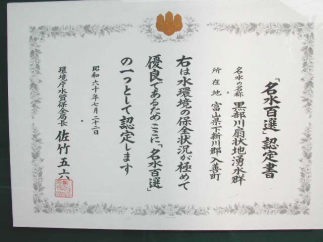 「名水百選」認定書
名水の名称 黒部川扇状地湧水群
所在地 富山県下新川郡入善町
右は水環境の保全状況が極めて
優良であるためここに「名水百選」
の一つとして認定します
昭和六十年七月二十二日
環境庁水質保全局長 佐竹五六